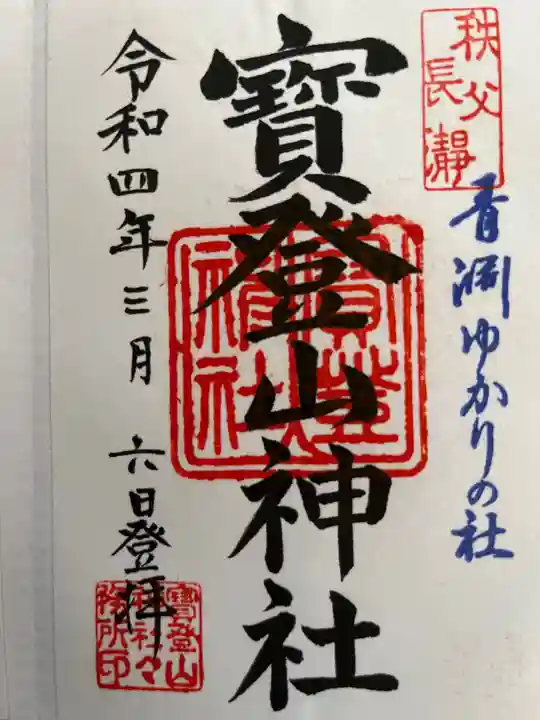 秩父
長瀞
青渊ゆかりの社
寳登山神社
令和四年三月六日登拝
寳登山
神社々
務所印